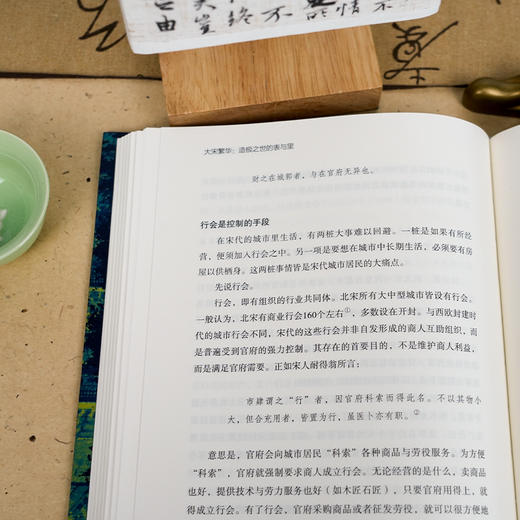 终不
情不
大宋繁华：造极之世的表与里
财之在城郭者，与在官府无异也。
行会是控制的手段
在宋代的城市里生活，有两桩大事难以回避。一桩是如果有所经
营，便须加入行会之中。另一项是要想在城市中长期生活，必须要有房
屋以供栖身。这两桩事情皆是宋代城市居民的大痛点。
先说行会。
行会，即有组织的行业共同体。北宋所有大中型城市皆设有行会。
一般认为，北宋有商业行会160个左右①，多数设在开封。与西欧封建时
代的城市行会不同，宋代的这些行会并非自发形成的商人互助组织，而
是普遍受到官府的强力控制。其存在的首要目的，不是维护商人利益，
而是满足官府需要。正如宋人耐得翁所言：
市肆谓之“行”者，因官府科索而得此名。不以其物小
大，但合充用者，皆置为行，虽医卜亦有职。②
意思是，官府会向城市居民“科索”各种商品与劳役服务。为方便
“科索”，官府就强制要求商人成立行会。无论经营的是什么，卖商品
也好，提供技术与劳力服务也好（如木匠石匠），只要官府用得上，就
得成立行会。有了行会，官府采购商品或者征发劳役，就可以很方便地